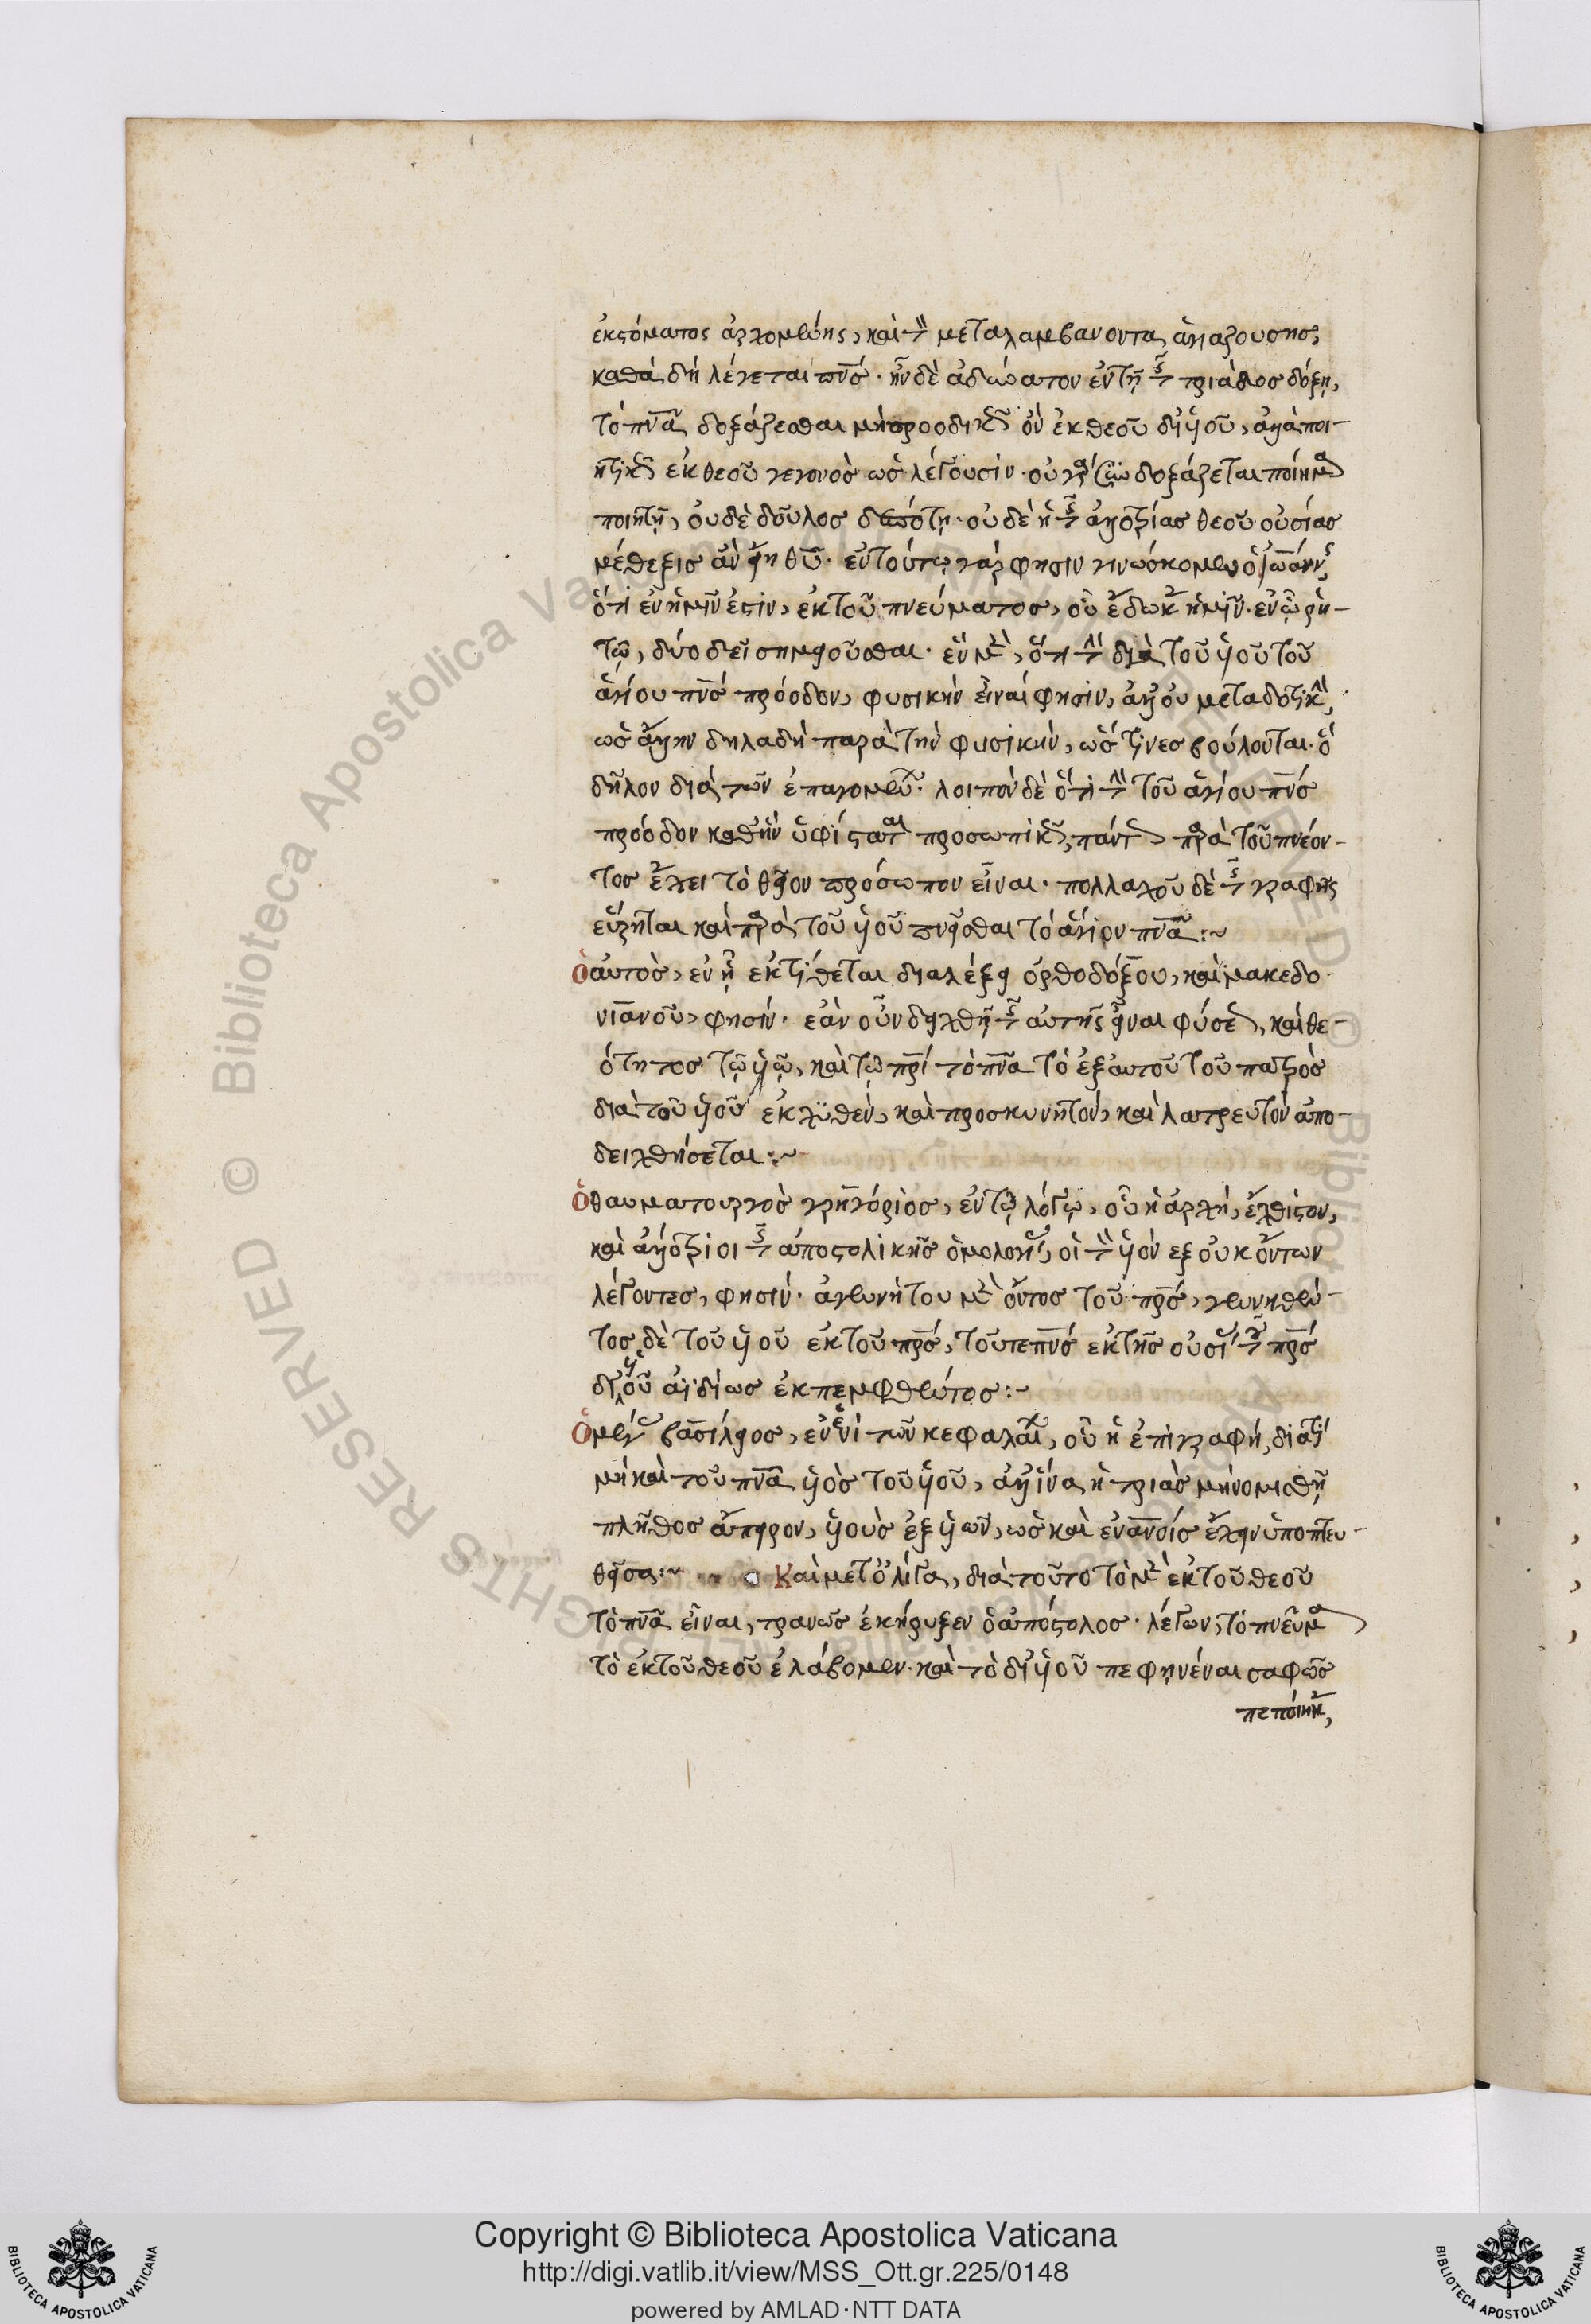 ἐκ στόματος ἀρχομένης, καὶ τὸν μεταλαμβάνοντα ἁγιαζούσης,
καθὰ δὴ λέγεται πνς. ἦν δὲ ἀδύνατον ἐν τῇ τῆς τριάδος δόξῃ,
τὸ πνα δοξάζεσθαι μὴ προοδικῶς ὂν ἐκ θεοῦ δι' υἱοῦ, ἀλλὰ ποι-
ητικῶς ἐκ θεοῦ γεγονὸς ὡς λέγουσιν. οὐ γὰρ δοξάζεται ποίημα
ποιητῇ, οὐδὲ δοῦλος δεσπότῃ. οὐδὲ ἡ τῆς ἀλλοτρίας θεοῦ οὐσίας
μέθεξις ἂν εἴη θῦ. ἐν τούτῳ γάρ φησιν γινώσκομεν ὁ ἰωάννης,
ὅτι ἐν ἡμῖν ἐστιν, ἐκ τοῦ πνεύματος, οὗ ἔδωκεν ἡμῖν. ἐν ᾧ ῥη-
τῷ, δύο δεῖ σημειοῦσθαι. ἓν μὲν, ὅτι τὴν διὰ τοῦ υἱοῦ τοῦ
ἁγίου πνς πρόοδον, φυσικὴν εἶναί φησιν, ἀλλ' οὐ μεταδοτικὴν,
ὡς ἄλλην δηλαδὴ παρὰ τὴν φυσικὴν, ὥς τινες βούλονται. ὃ
δῆλον διὰ τῶν ἐπαγομένων. λοιπὸν δὲ ὅτι τὴν τοῦ ἁγίου πνς
πρόοδον καθ' ἣν ὑφίσταται προσωπικῶς, πάντως παρὰ τοῦ πνέον-
τος ἔχει τὸ θεῖον πρόσωπον εἶναι. πολλαχοῦ δὲ τῆς γραφῆς
εὕρηται καὶ παρὰ τοῦ υἱοῦ πνεῖσθαι τὸ ἅγιον πνα:~
ὁ αὐτὸς, ἐν ᾗ ἐκτίθεται διαλέξει ὀρθοδόξου, καὶ μακεδο-
νιανοῦ, φησίν. ἐὰν οὖν δειχθῇ τῆς αὐτῆς εἶναι φύσεως, καὶ θε-
ότητος τῷ υἱῷ, καὶ τῷ πρὶ τὸ πνα τὸ ἐξ αὐτοῦ τοῦ πατρὸς
διὰ τοῦ υἱοῦ ἐκχυθὲν, καὶ προσκυνητὸν, καὶ λατρευτὸν ἀπο-
δειχθήσεται:~
ὁ θαυματουργὸς γρηγόριος, ἐν τῷ λόγῳ, οὗ ἡ ἀρχὴ, ἔχθιστον,
καὶ ἀλλότριοι τῆς ἀποστολικῆς ὁμολογίας, οἱ τὸν υἱὸν ἐξ οὐκ ὄντων
λέγοντες, φησίν. ἀγεννήτου μὲν ὄντος τοῦ πρς, γεννηθέν-
τος δὲ τοῦ υἱοῦ ἐκ τοῦ πρς, τοῦ τε πνς ἐκ τῆς οὐσίας τοῦ πρς
δι' υἱοῦ ἀϊδίως ἐκπεμφθέντος:~
Ὁ μέγας βασίλειος, ἐν ἑνὶ τῶν κεφαλαίων, οὗ ἡ ἐπιγραφὴ, διατί
μὴ καὶ τοῦ πνα υἱὸς τοῦ υἱοῦ, ἀλλ' ἵνα ἡ τριὰς μὴ νομισθῇ
πλῆθος ἄπειρον, υἱοὺς ἐξ υἱῶν, ὡς καὶ ἐν ανοις ἔχειν ὑποπτευ-
θεῖσα:~ Καὶ μετ' ὀλίγα, διὰ τοῦτο τὸ μὲν ἐκ τοῦ θεοῦ
τὸ πνα εἶναι, τρανῶς ἐκήρυξεν ὁ ἀπόστολος. λέγων, τὸ πνεῦμα
τὸ ἐκ τοῦ θεοῦ ἐλάβομεν. καὶ τὸ δι' υἱοῦ πεφηνέναι σαφῶς
πεποίηκεν,
Copyright © Biblioteca Apostolica Vaticana
http://digi.vatlib.it/view/MSS_Ott.gr.225/0148
powered by AMLAD·NTT DATA